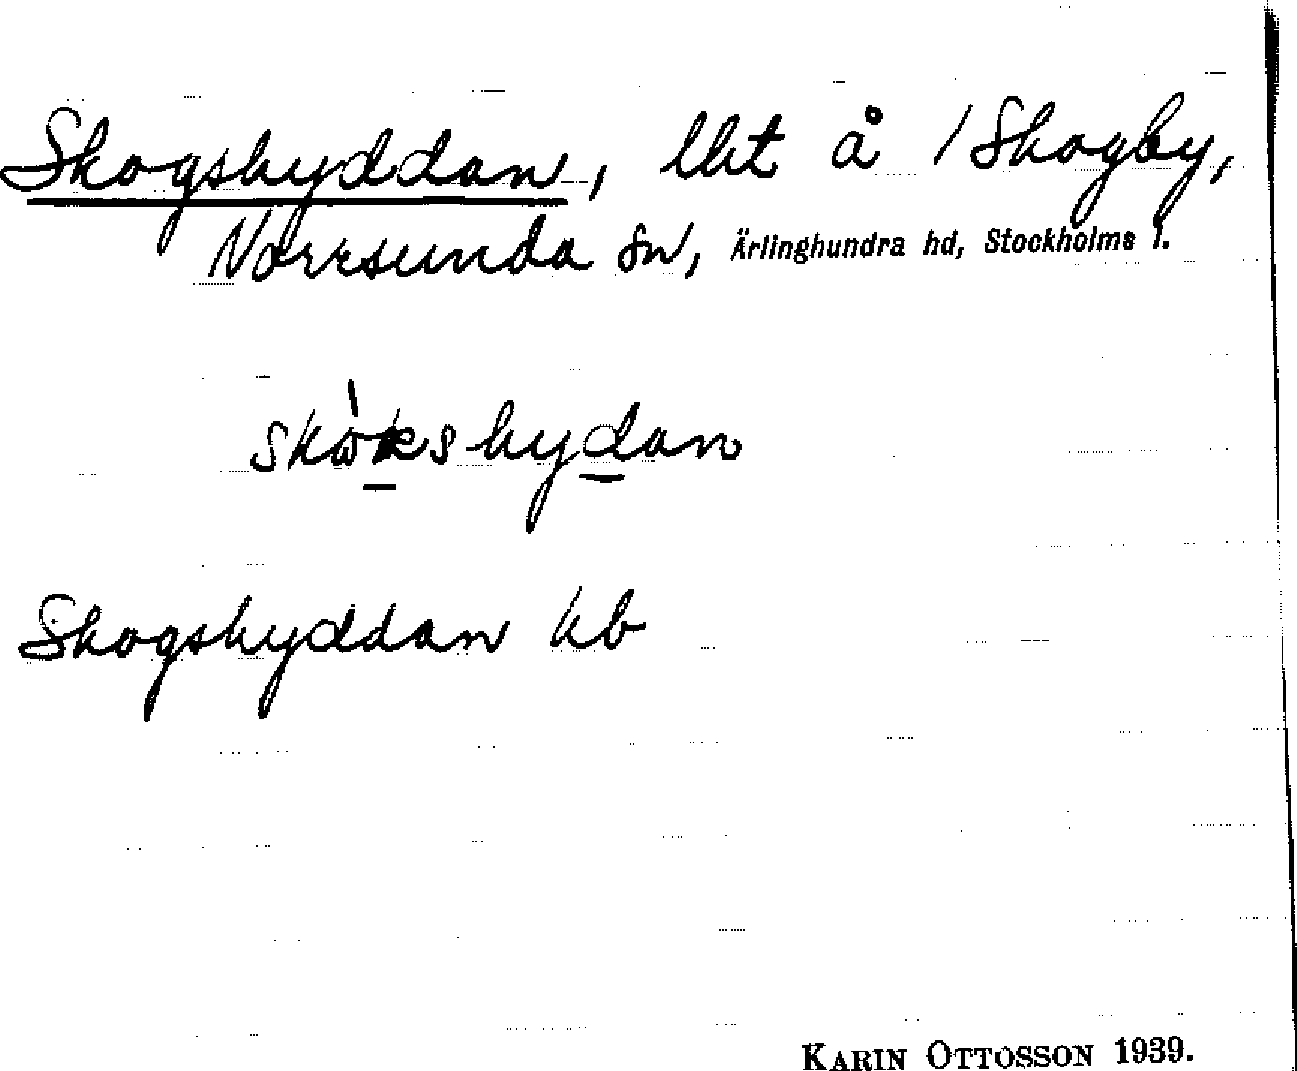 Skogshyddan, lht å / Skogby,
Norrsunda sn, Ärlinghundra hd, Stockholms l.
skòkshydan
Skogshyddan kb
KARIN OTTOSSON 1939.